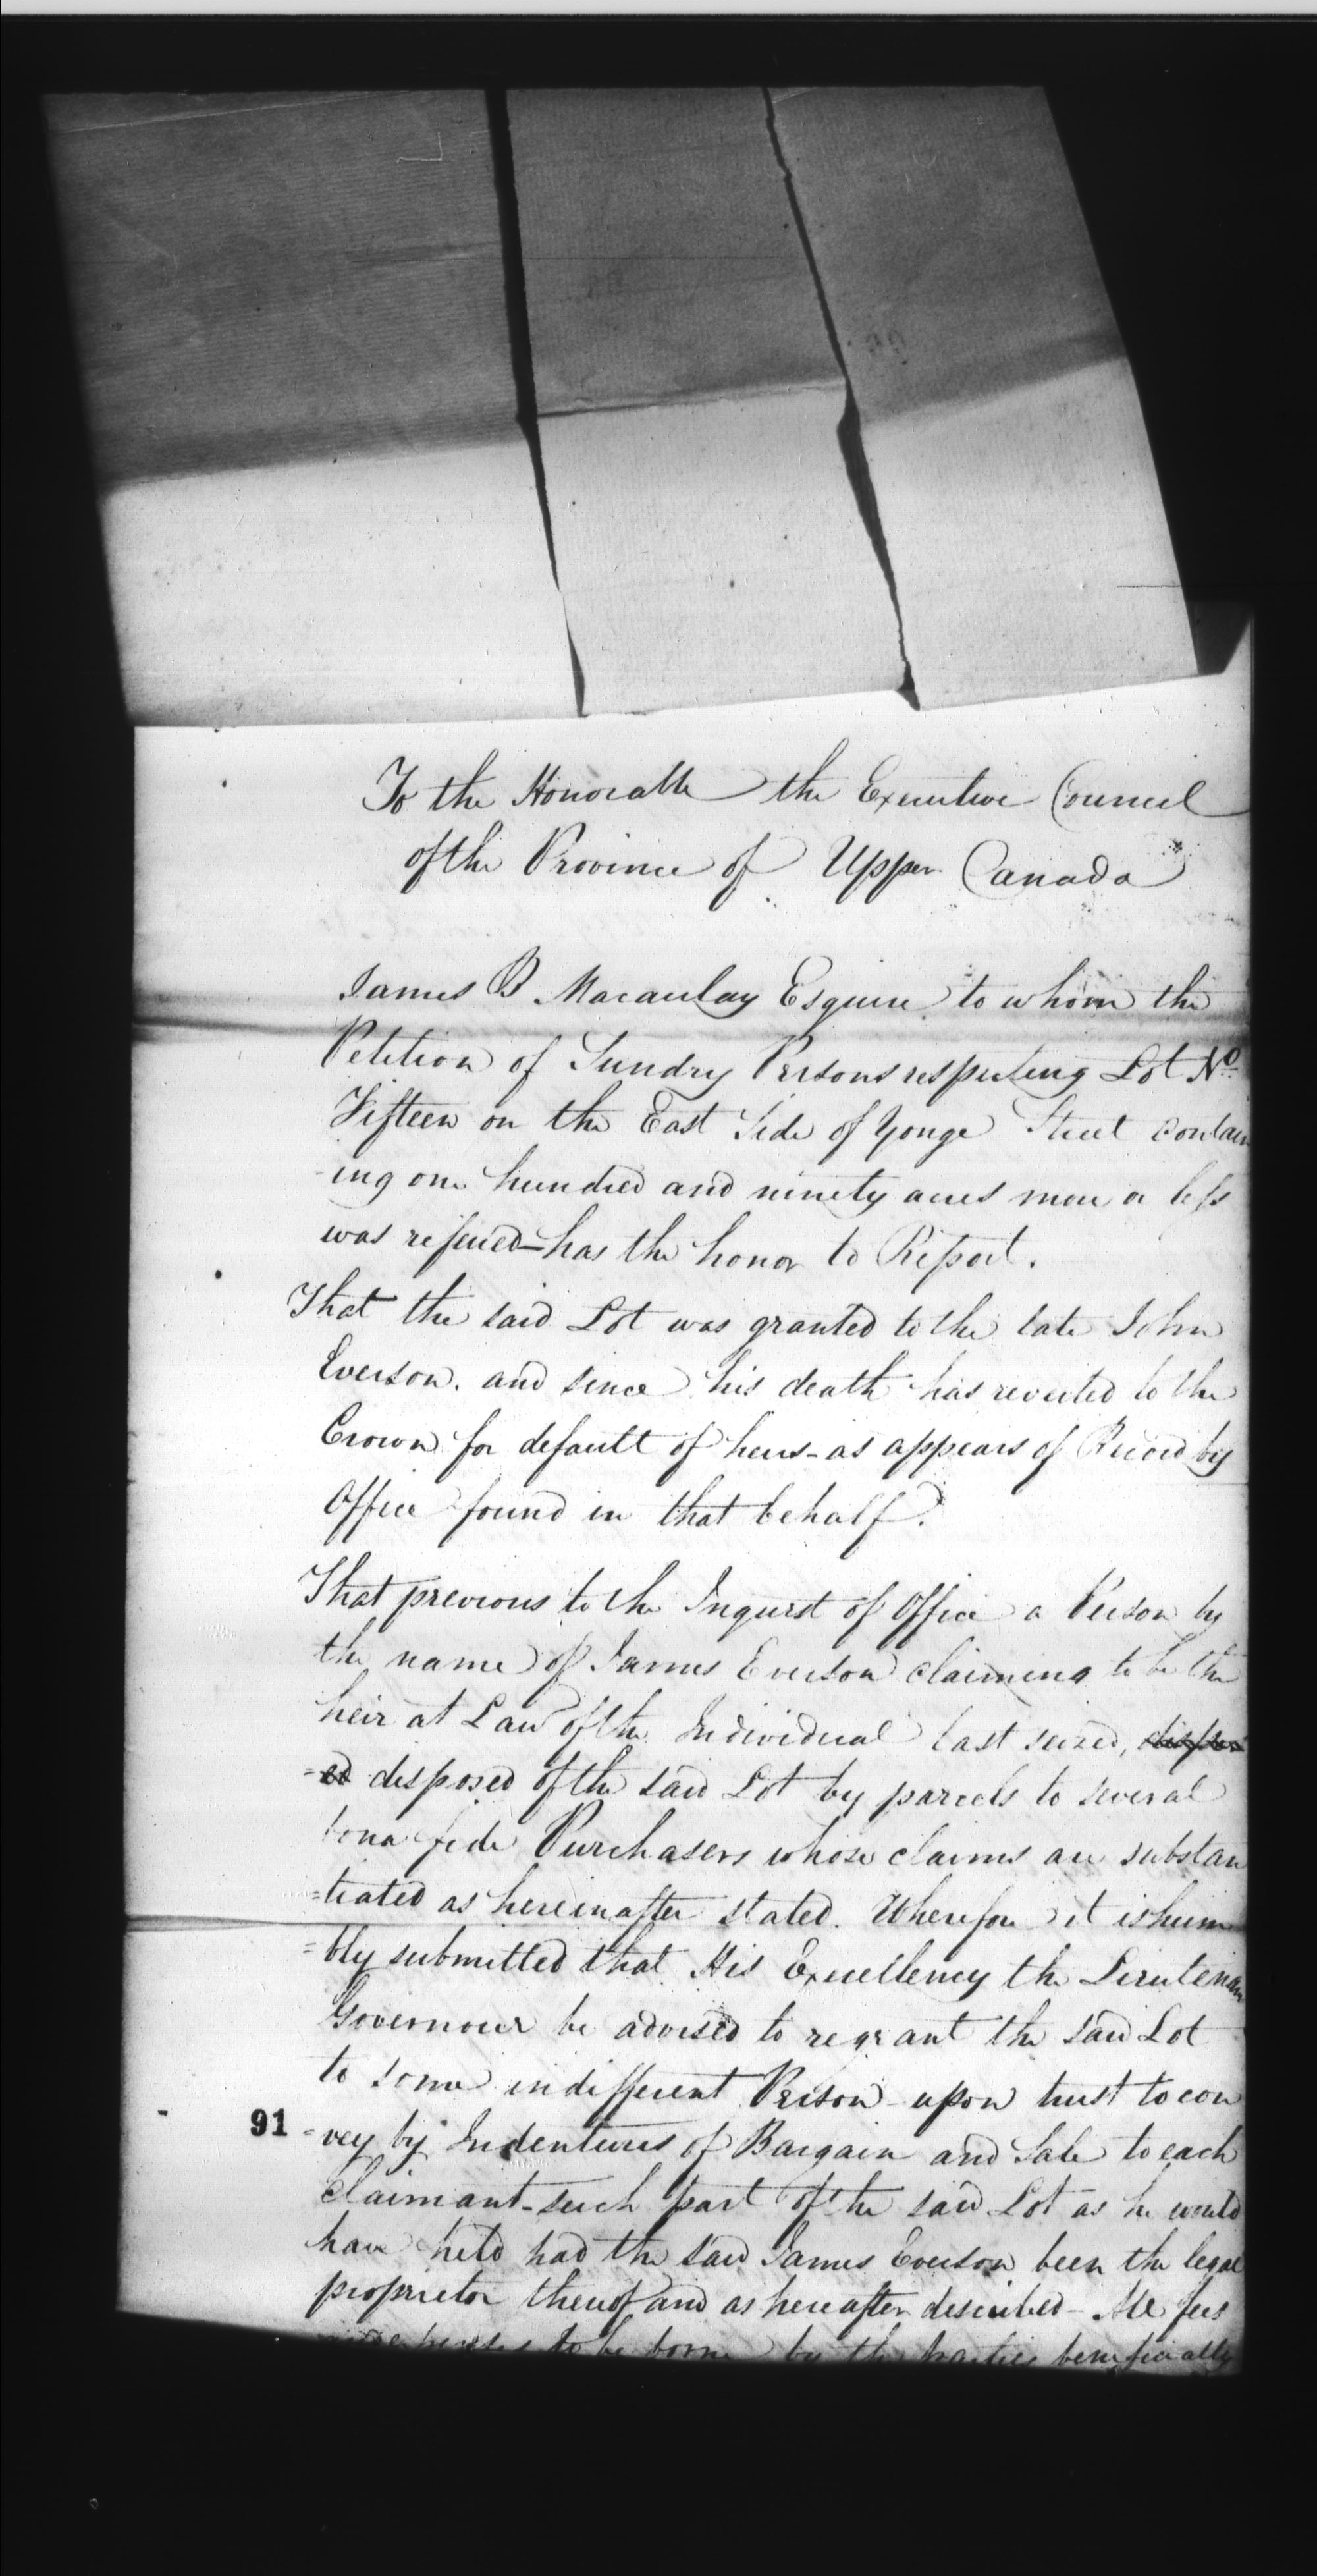 To the Honorable the Executive Council
of the Province of Upper Canada
James B Macaulay Esquire to whom the
Petition of Sundry Persons respecting Lot No
Fifteen on the East Side of Yonge Street contain
ing one hundred and ninety acres more or less
was referred - has the honor to Report.
That the said Lot was granted to the late John
Everson. and since his death has reverted to the
Crown for default of heirs - as appears of Record by
Office found in that behalf.
That previous to the Inquest of Office a Person by
the name of James Everson claiming to be the
heir at Law of the Individual last seized, dispos
=ed disposed of the said Lot by parcels to several
bona fide Purchasers whose claims are substan
=tiated as hereinafter stated. Wherefore it is hum
=bly submitted that His Excellency the Lieutenan
Governour be advised to regrant the said Lot
to some indifferent Person - upon trust to con
91 =vey by Indentures of Bargain and Sale to each
claimant - such part of the said Lot as he would
have held had the said James Everson been the legal
proprietor thereof and as hereafter described - All fees
to be borne by the parties beneficially